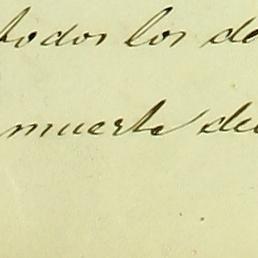 todos los de
muerte de